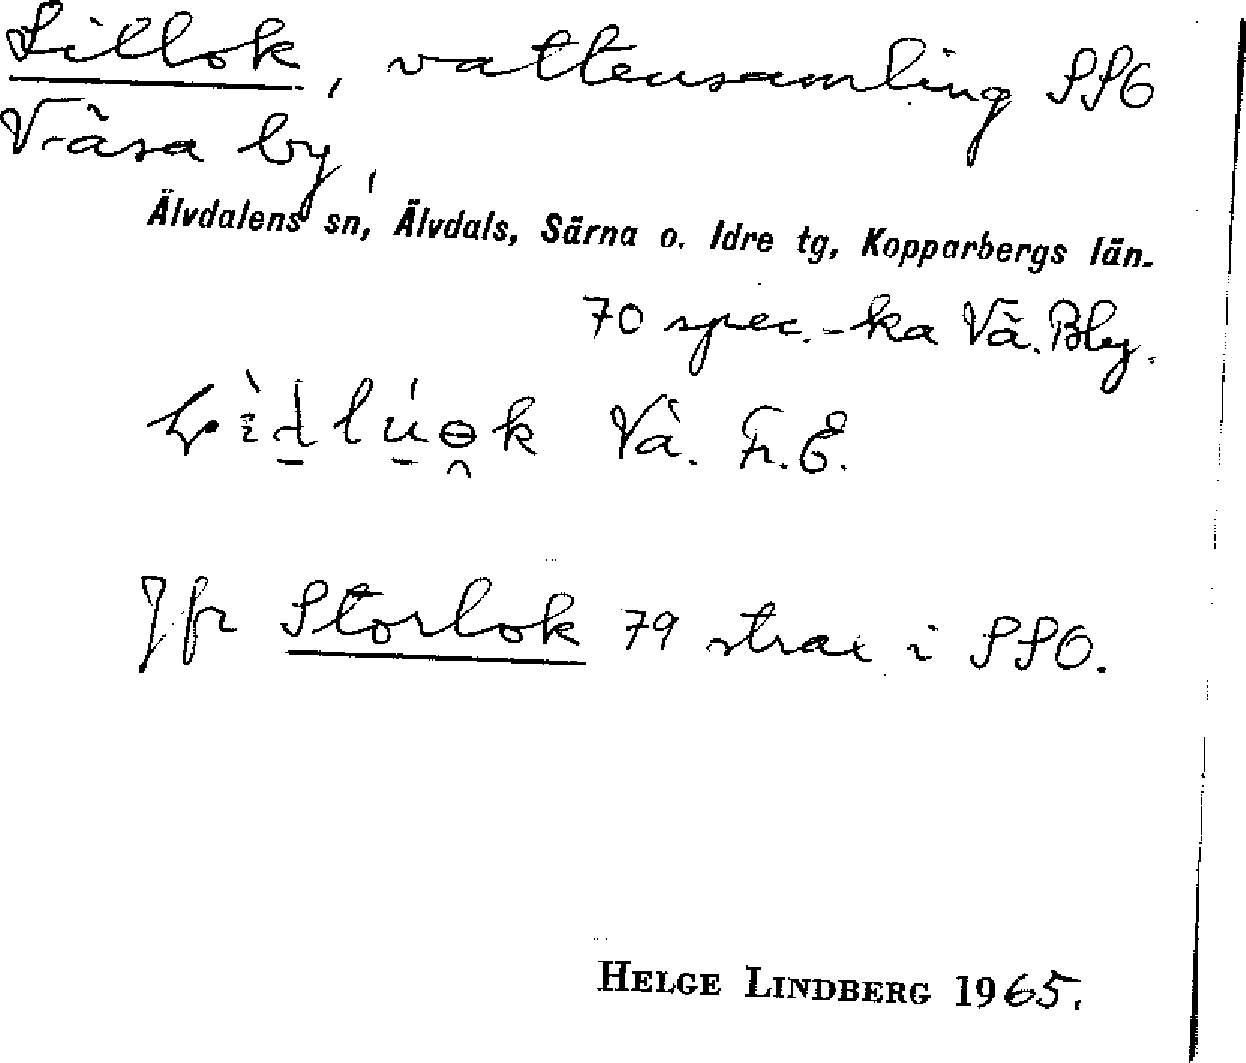 Lillok, vattensamling SSO
Våsa by,
Älvdalens sn, Älvdals, Särna o. Idre tg, Kopparbergs län.
70 spec.-ka Vå. Bby.
Vå. Fr. E.
Jfr Storlok 79 strax i SSO.
HELGE LINDBERG 1965.